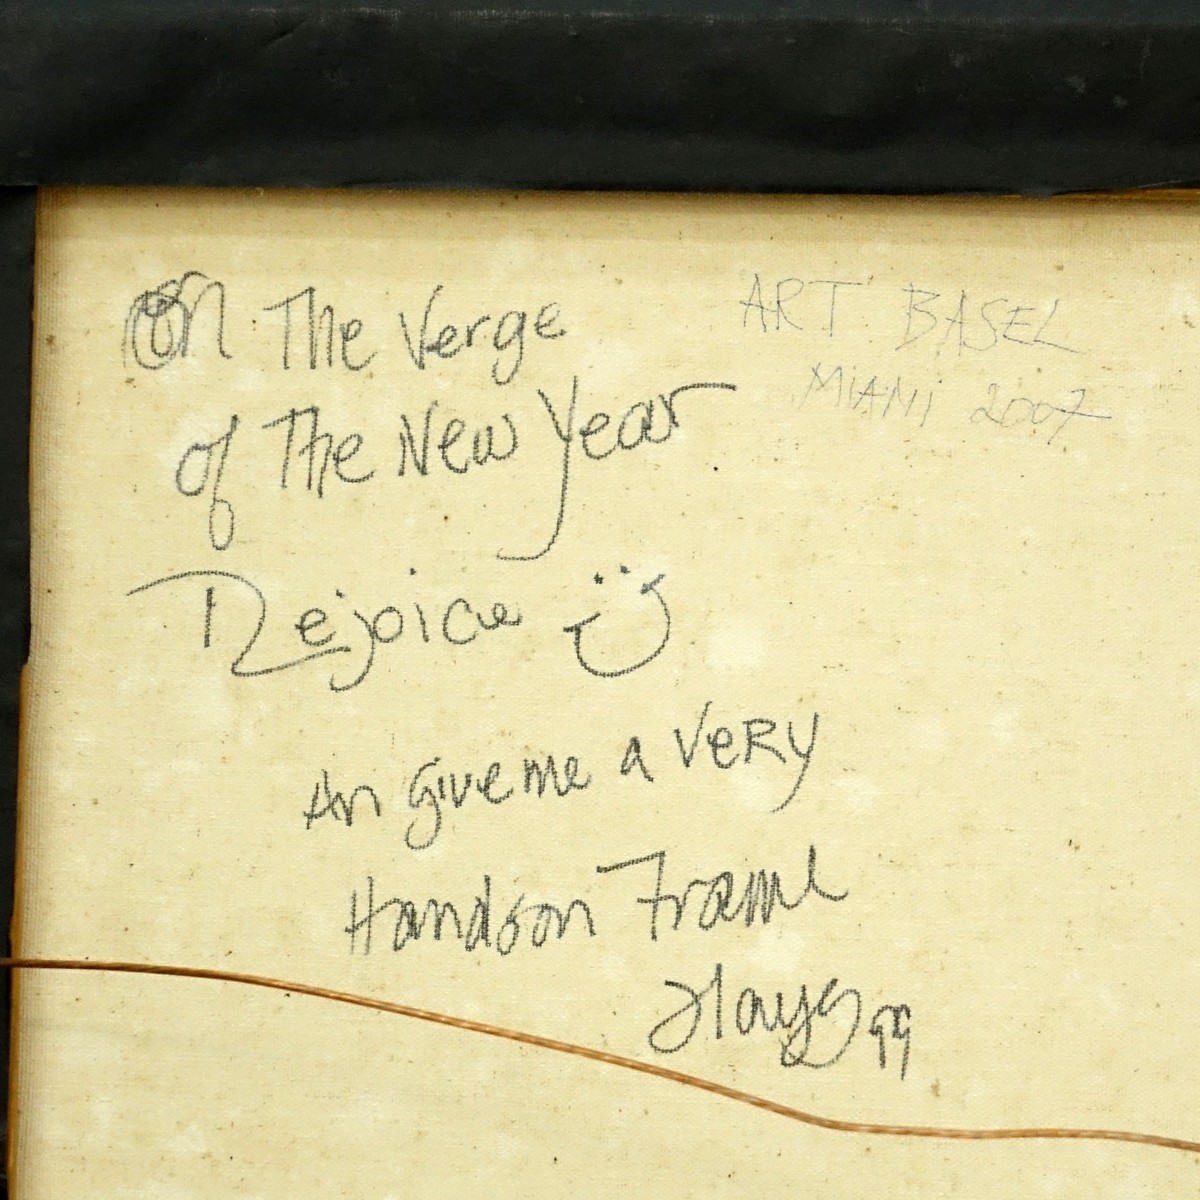 On The Verge
of The New Year
Rejoice
An give me a VeRy
Handson Frame
Hays 99
ART BASEL
MiAMi 2007